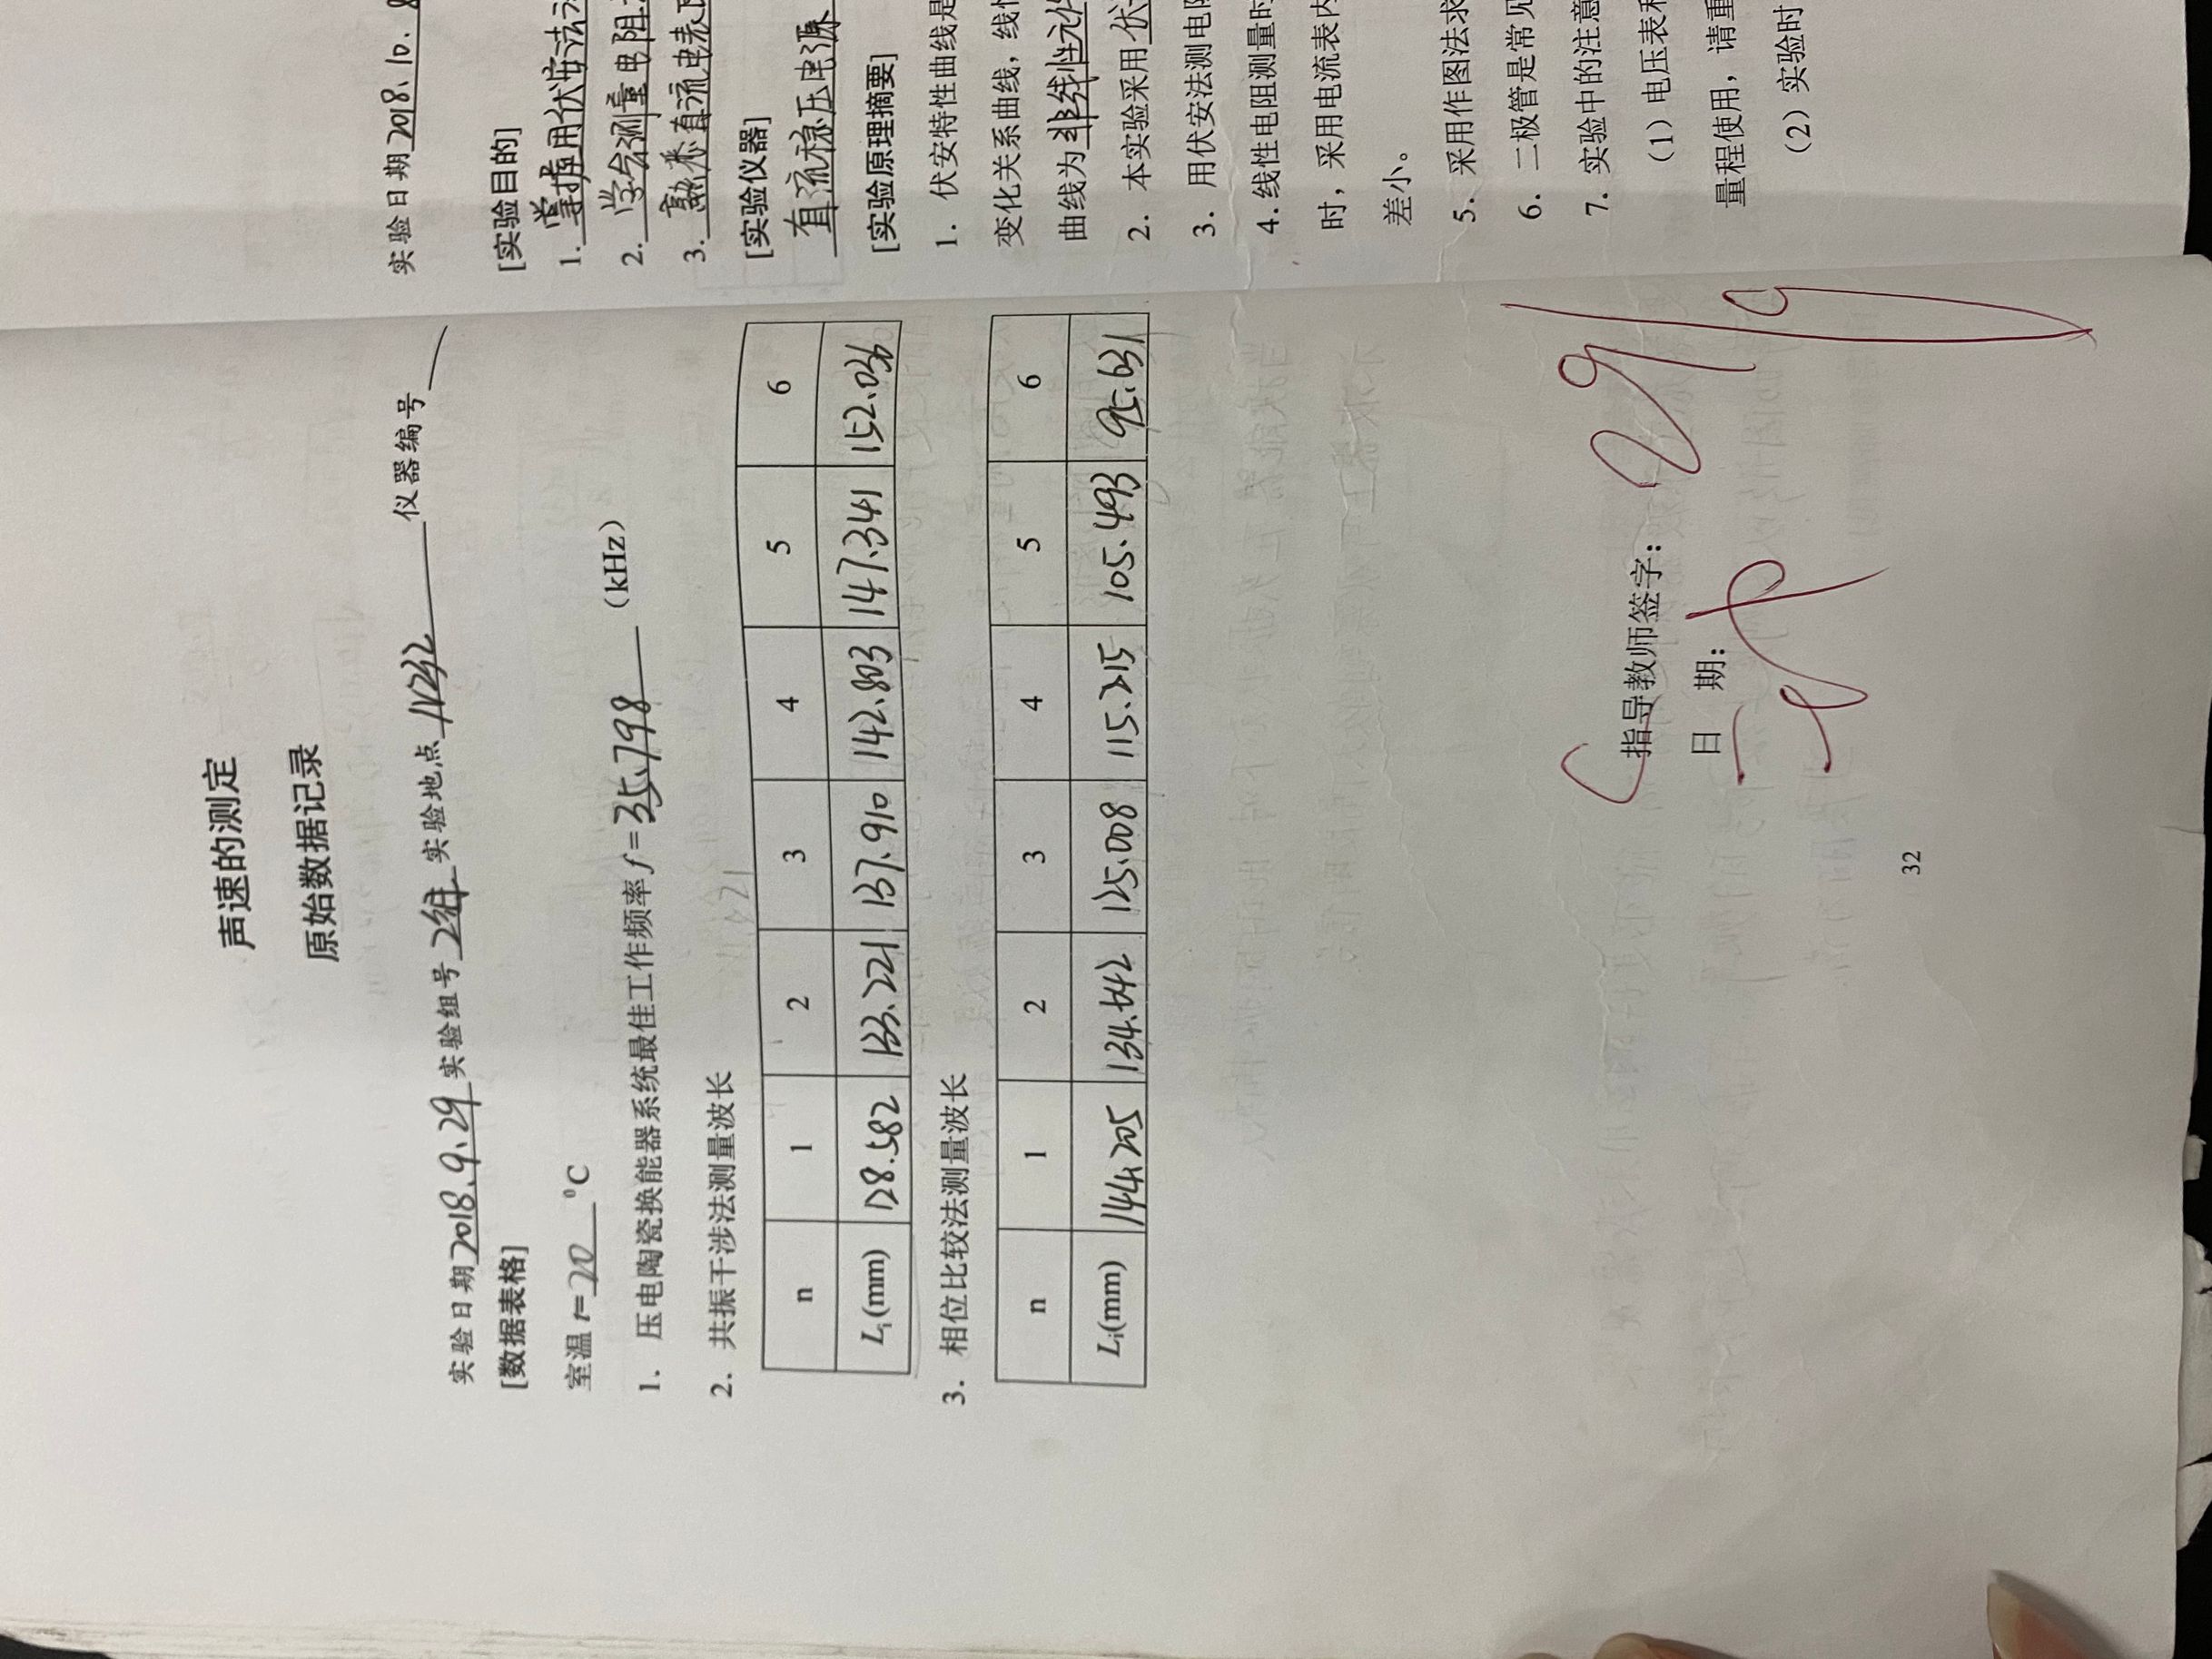 声速的测定
原始数据记录
实验日期2018.9.29实验组号2组实验地点N232仪器编号
[数据表格]
室温 t=20 ⁰C
1. 压电陶瓷换能器系统最佳工作频率 f=35.798 (kHz)
2. 共振干涉法测量波长
n 1 2 3 4 5 6
Li(mm) 128.582 133.221 137.910 142.803 147.341 152.036
3. 相位比较法测量波长
n 1 2 3 4 5 6
Li(mm) 144.205 134.642 125.008 115.215 105.493 95.631
指导教师签字: 29/9
日 期:
32
实验日期2018.10.8
[实验目的]
1. 掌握用伏安法
2. 学会测量电阻
3. 熟悉直流电表
[实验仪器]
直流稳压电源
[实验原理摘要]
1. 伏安特性曲线是
变化关系曲线，线性
曲线为非线性元件
2. 本实验采用伏
3. 用伏安法测电阻
4.线性电阻测量时
时，采用电流表内
差小。
5. 采用作图法求
6. 二极管是常见
7. 实验中的注意
(1) 电压表和
量程使用，请重
(2) 实验时